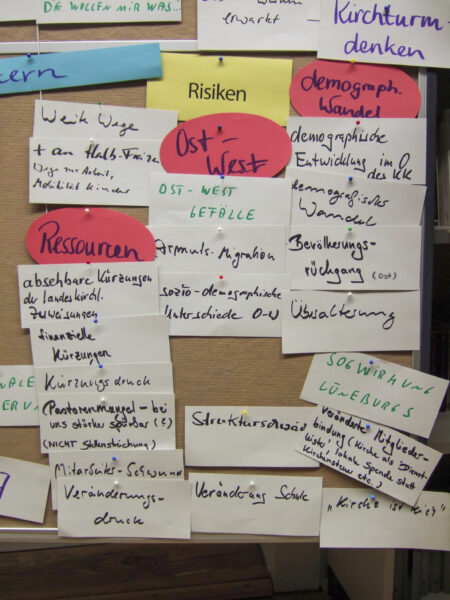 DIE WOLLEN MIR WAS-
erwartet
Kirchturm-
denken
Risiken
demograph.
Wandel
Weite Wege
Ost-
West
demographische
Entwicklung im O
des KK
Wege zur Arbeit,
Mobilität Kinder
OST-WEST
GEFÄLLE
demografischer
Wandel
Ressourcen
Armuts-Migration
Bevölkerungs-
rückgang (Ost)
absehbare Kürzungen
der landeskirchl.
Zuweisungen
sozio-demographische
Unterschiede O-W
Überalterung
finanzielle
Kürzungen
Kürzungsdruck
SOGWIRKUNG
LÜNEBURGS
(Pastorenmangel - bei
uns stärker spürbar (?)
(NICHT Stellenstreichung)
Veränderte Mitglieder-
bindung (Kirche als Dienst-
leister, lokal Spende statt
Kirchensteuer etc.)
Mitarbeiter-Schwund
Veränderungs-
druck
Veränderung Schule
"Kirche ist nich"